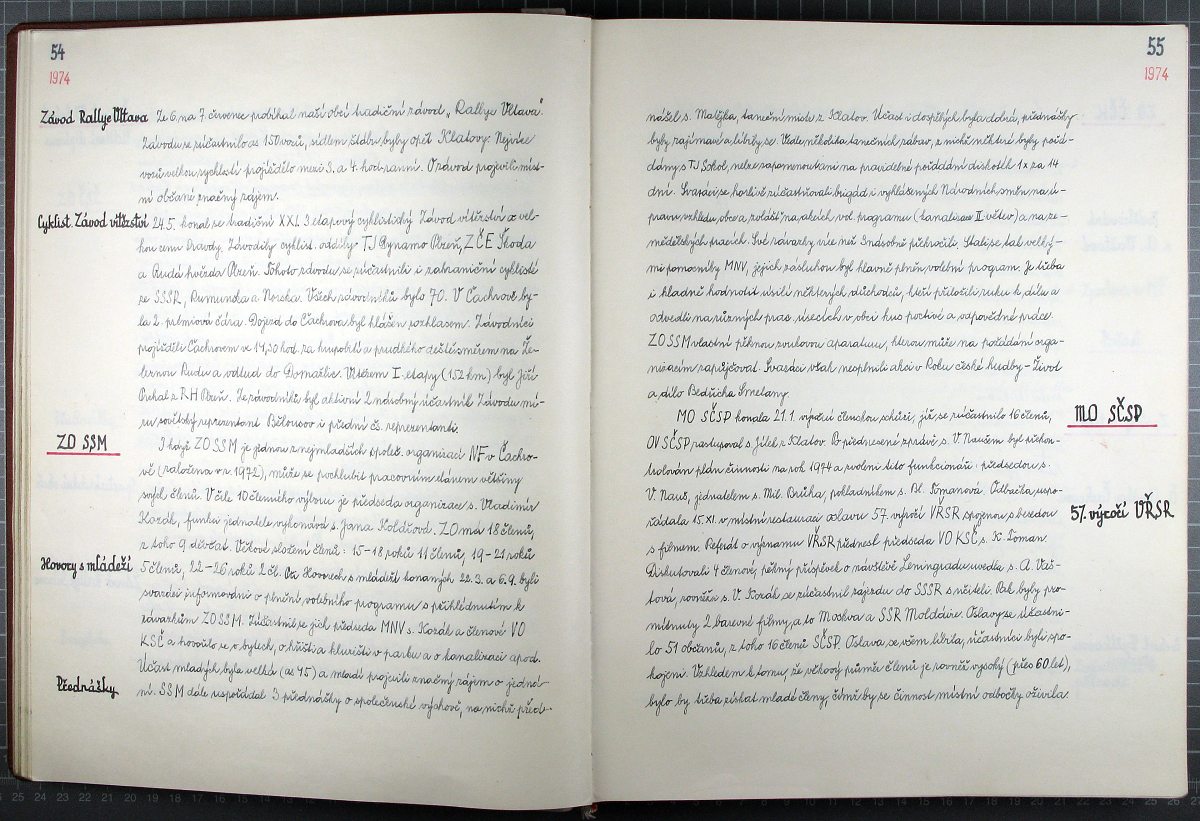 54
1974
Závod Rallye Vltava Ze 6. na 7. červenec probíhal naší obcí tradiční závod „Rallye Vltava".
Závodu se zúčastnilo as 150 vozů, sídlem štábu byly opět Klatovy. Nejvíce
vozů velkou rychlostí projíždělo mezi 3. a 4. hod. ranní. O závod projevili míst-
ní občané značný zájem.
Cyklist. Závod vítězství 24.5. konal se tradiční XXI. 3 etapový cyklistický Závod vítězství o vel-
kou cenu Pravdy. Závodily cyklist. oddíly TJ Dynamo Plzeň, ZČE Škoda
a Rudá hvězda Plzeň. Tohoto závodu se zúčastnili i zahraniční cyklisté
ze SSSR, Rumunska a Norska. Všech závodníků bylo 70. V Čachrově by-
la 2. prémiová čára. Dojezd do Čachrova byl hlášen rozhlasem. Závodníci
projížděli Čachrovem ve 14,30 hod. za krupobití a prudkého deště směrem na Že-
leznou Rudu a odtud do Domažlic. Vítězem I. etapy (152 km) byl Jiří
Prchal z RH Plzeň. Ze závodníků byl aktivní 2 násobný účastník Závodu mí-
ru sovětský reprezentant Bělousov i přední čs. reprezentanti.
ZO SSM
I když ZO SSM je jednou z nejmladších společ. organizací NF v Čachro-
vě (založena v r. 1972), může se pochlubit pracovním elánem většiny
svých členů. V čele 10 členného výboru je předseda organizace s. Vladimír
Kozák, funkci jednatele vykonává s. Jana Kolářová. ZO má 18 členů,
z toho 9 děvčat. Věkové složení členů: 15-18 roků 11 členů, 19-21 roků
Hovory s mládeží 5 členů, 22-26 roků 2 čl. Na Hovorech s mládeží konaných 22.3. a 6.9. byli
svazáci informováni o plnění volebního programu s přihlédnutím k
závazkům ZO SSM. Zúčastnil se jich předseda MNV s. Kozák a členové VO
KSČ a hovořilo se o bytech, o hřišti a kluzišti v parku a o kanalizaci apod.
Účast mladých byla velká (as 45) a mladí projevili značný zájem o jedná-
Přednášky ní. SSM dále uspořádal 3 přednášky o společenské výchově, na nichž před-
55
1974
nášel s. Matějka, taneční mistr z Klatov. Účast i dospělých byla dobrá, přednášky
byly zajímavé a líbily se. Vedle několika tanečních zábav, z nichž některé byly pořá-
dány s TJ Sokol, nelze zapomenout ani na pravidelné pořádání diskoték 1x za 14
dní. Svazáci se horlivě zúčastňovali brigád i vyhlášených Národních směn na ú-
pravu vzhledu obce a zvláště na akcích vol. programu (kanalizace II větev) a na ze-
mědělských pracích. Své závazky více než 3 násobně překročili. Stali se tak velký-
mi pomocníky MNV, jejich zásluhou byl hlavně plněn volební program. Je třeba
i kladně hodnotit úsilí některých důchodců, kteří přiložili ruku k dílu a
odvedli na různých prac. úsecích v obci kus poctivé a odpovědné práce.
ZO SSM vlastní pěknou zvukovou aparaturu, kterou může na požádání orga-
nizacím zapůjčovat. Svazáci však nesplnili akci v Roku české hudby - Život
a dílo Bedřicha Smetany.
MO SČSP konala 21.1. výroční členskou schůzi, jíž se zúčastnilo 16 členů, MO SČSP
OV SČSP zastupoval s. Jílek z Klatov. Po přednesené zprávě s. V. Naušem byl překon-
trolován plán činnosti na rok 1974 a zvoleni tito funkcionáři: předsedou s.
V. Nauš, jednatelem s. Mil. Bruha, pokladníkem s. Bl. Tomanová. Odbočka uspo-
řádala 15.XI. v místní restauraci oslavu 57. výročí VŘSR spojenou s besedou 57. výročí VŘSR
s filmem. Referát o významu VŘSR přednesl předseda VO KSČ s. K. Toman.
Diskutovali 4 členové, pěkný příspěvek o návštěvě Leningradu uvedla s. A. Vái-
tová, rovněž s. V. Kozák se zúčastnil zájezdu do SSSR s učiteli. Pak byly pro-
mítnuty 2 barevné filmy, a to Moskva a SSR Moldávie. Oslavy se účastni-
lo 51 občanů, z toho 16 členů SČSP. Oslava se všem líbila, účastníci byli spo-
kojeni. Vzhledem k tomu, že věkový průměr členů je rovněž vysoký (přes 60 let),
bylo by třeba získat mladé členy, čímž by se činnost místní odbočky oživila.